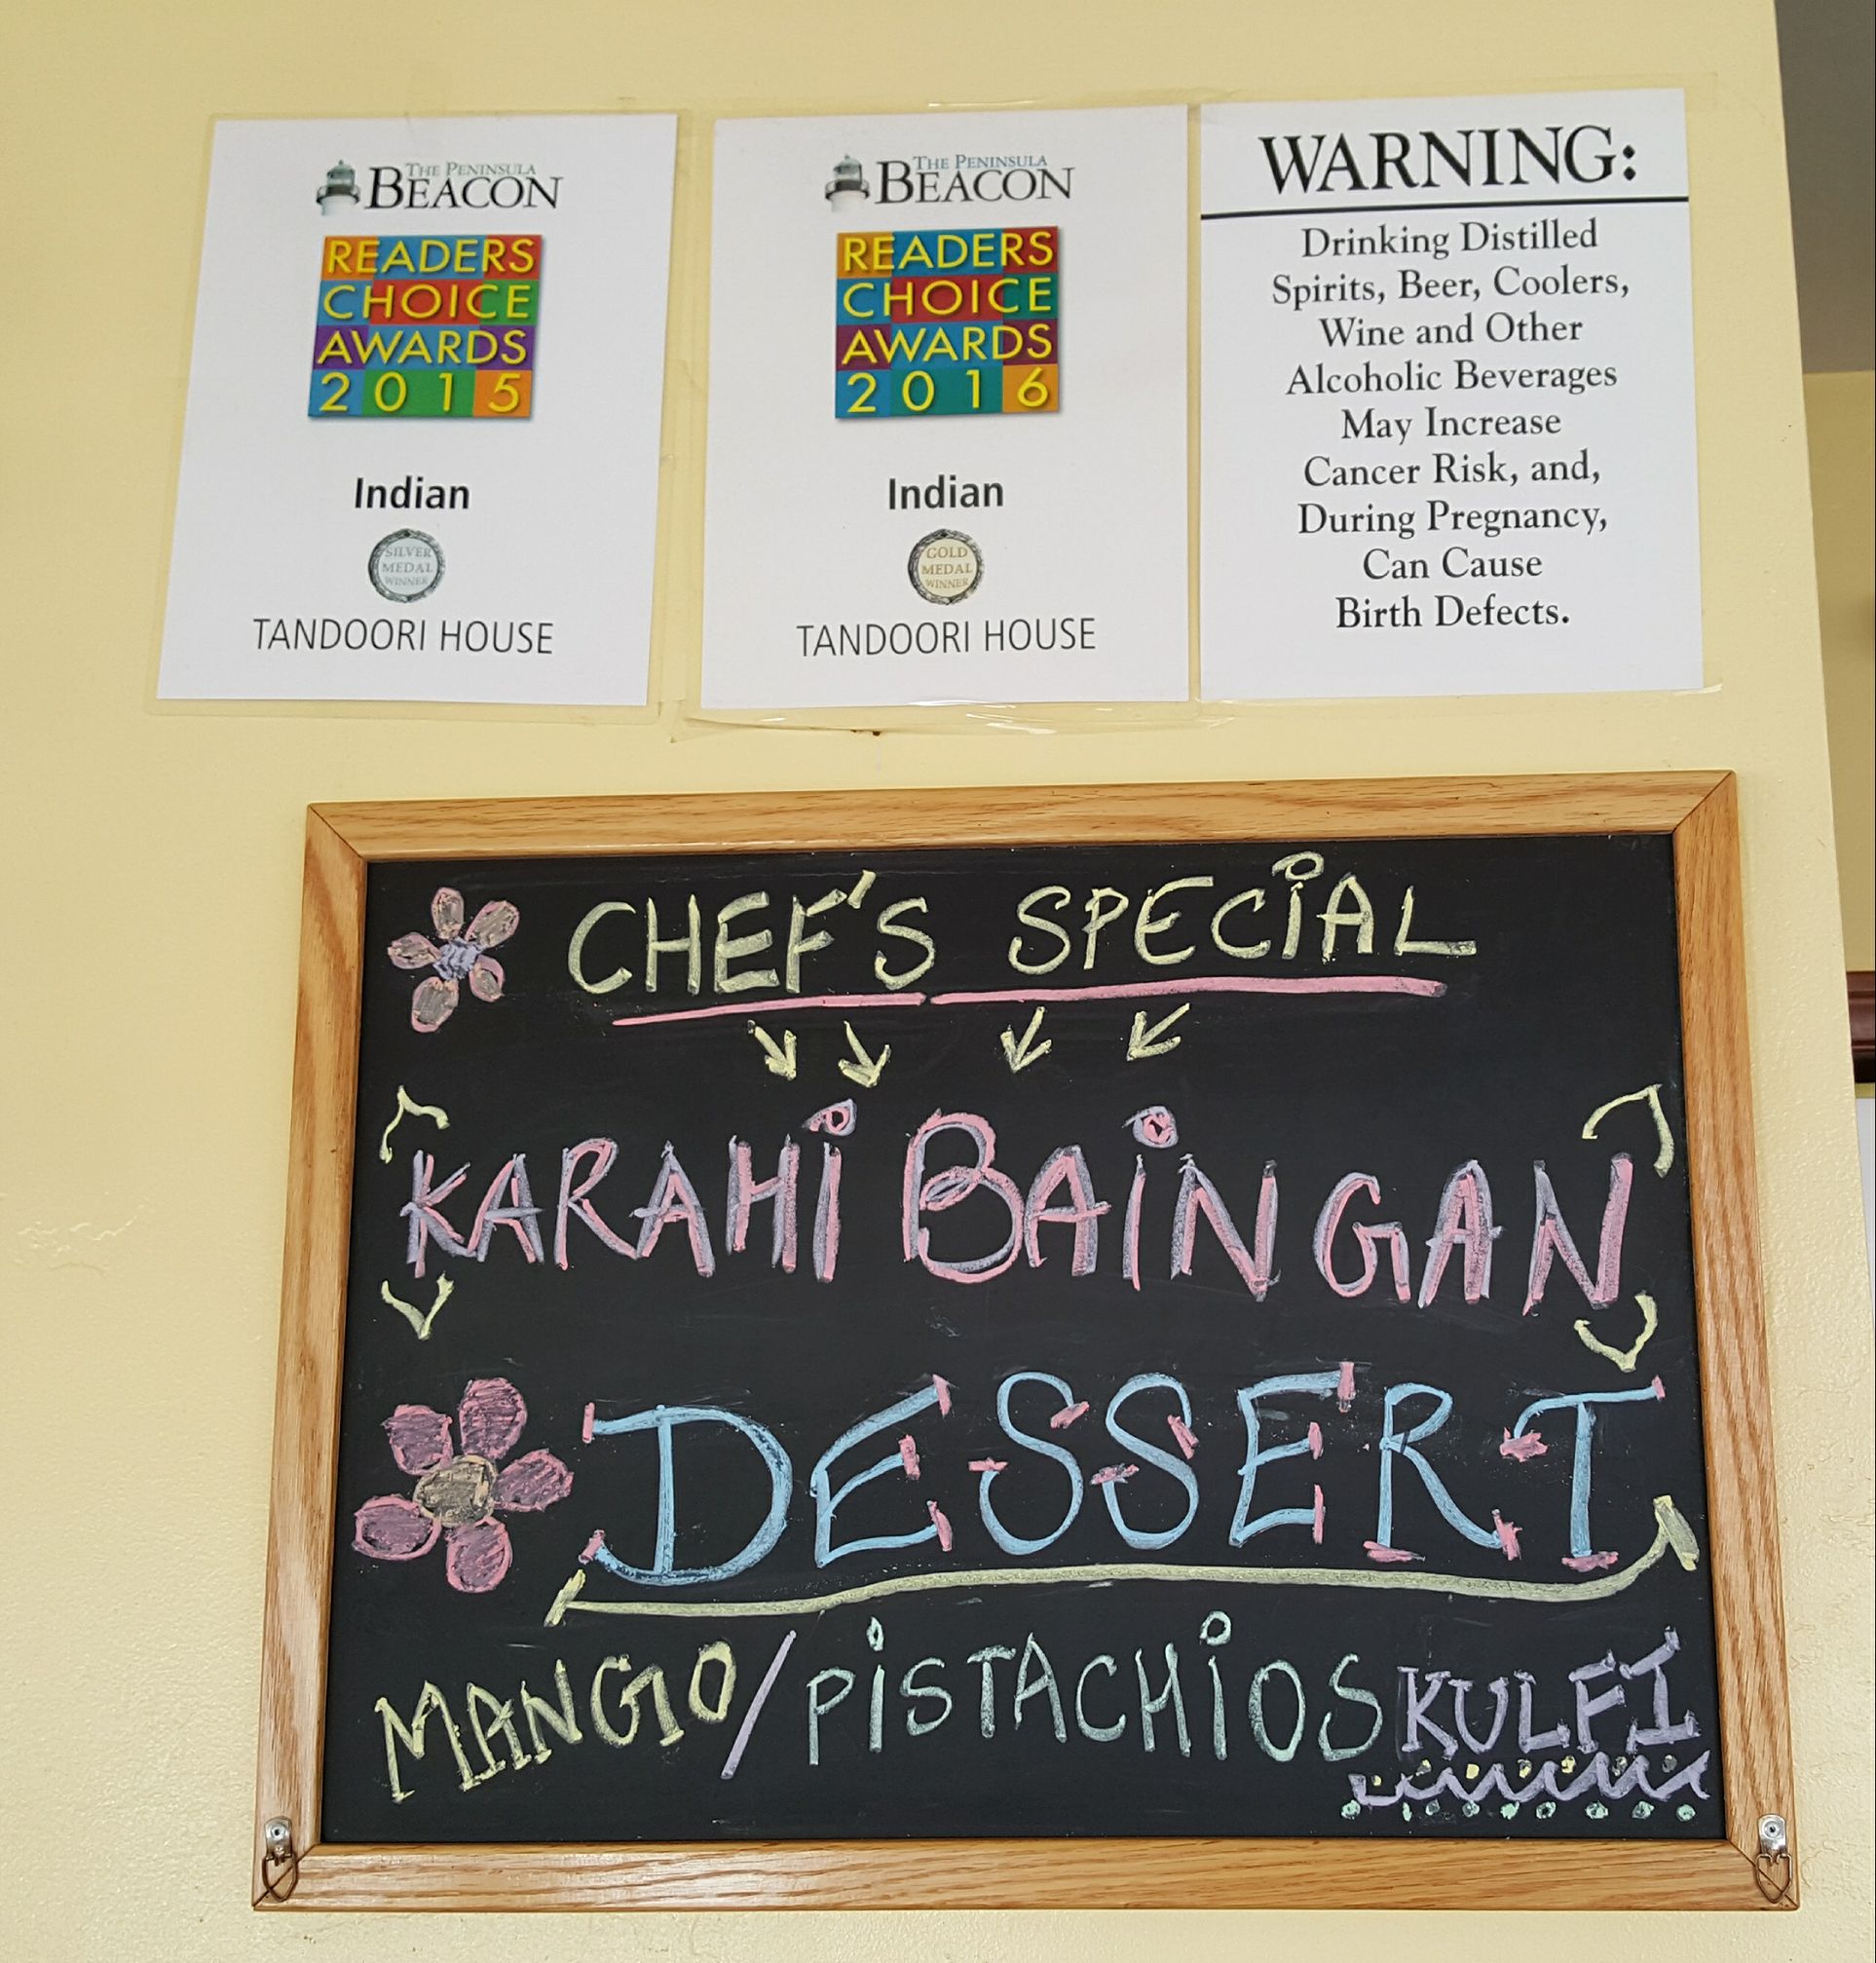 THE PENINSULA
BEACON
READERS
CHOICE
AWARDS
2015
Indian
SILVER
MEDAL
WINNER
TANDOORI HOUSE
THE PENINSULA
BEACON
READERS
CHOICE
AWARDS
2016
Indian
GOLD
MEDAL
WINNER
TANDOORI HOUSE
WARNING:
Drinking Distilled
Spirits, Beer, Coolers,
Wine and Other
Alcoholic Beverages
May Increase
Cancer Risk, and,
During Pregnancy,
Can Cause
Birth Defects.
CHEF'S SPECiAL
KARAHi BAiNGAN
DESSERT
MANGO/PiSTACHiOS KULFI